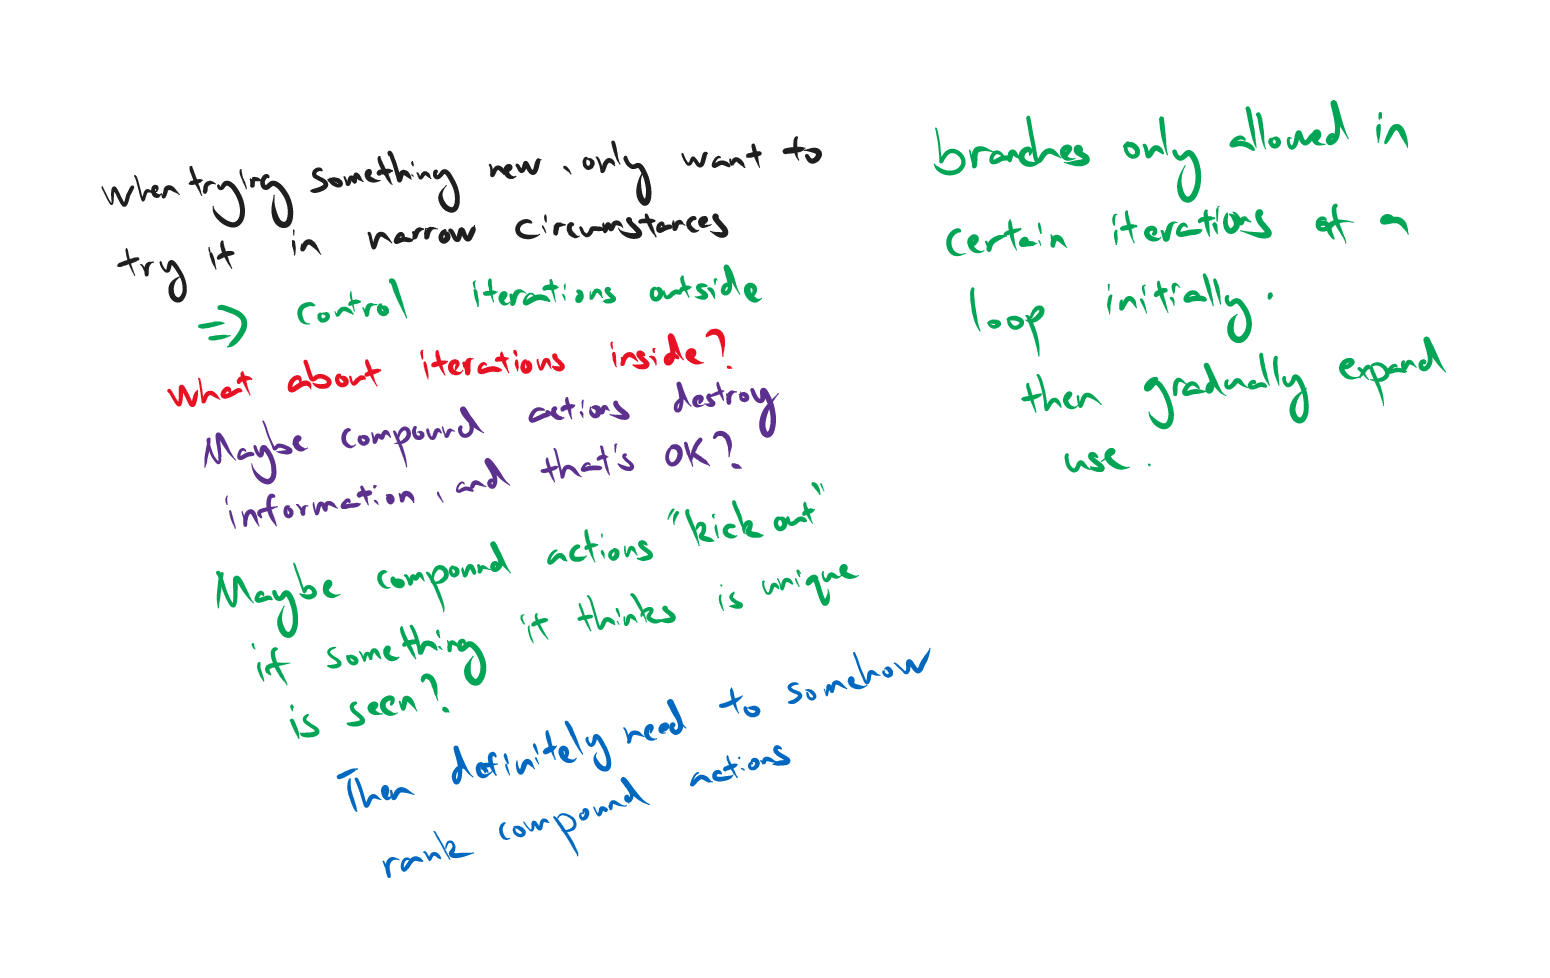 when trying something new, only want to
try it in narrow circumstances
=> control iterations outside
What about iterations inside?
Maybe compound actions destroy
information, and that's OK?
Maybe compound actions "kick out"
if something it thinks is unique
is seen?
Then definitely need to somehow
rank compound actions
branches only allowed in
certain iterations of a
loop initially.
then gradually expand
use.